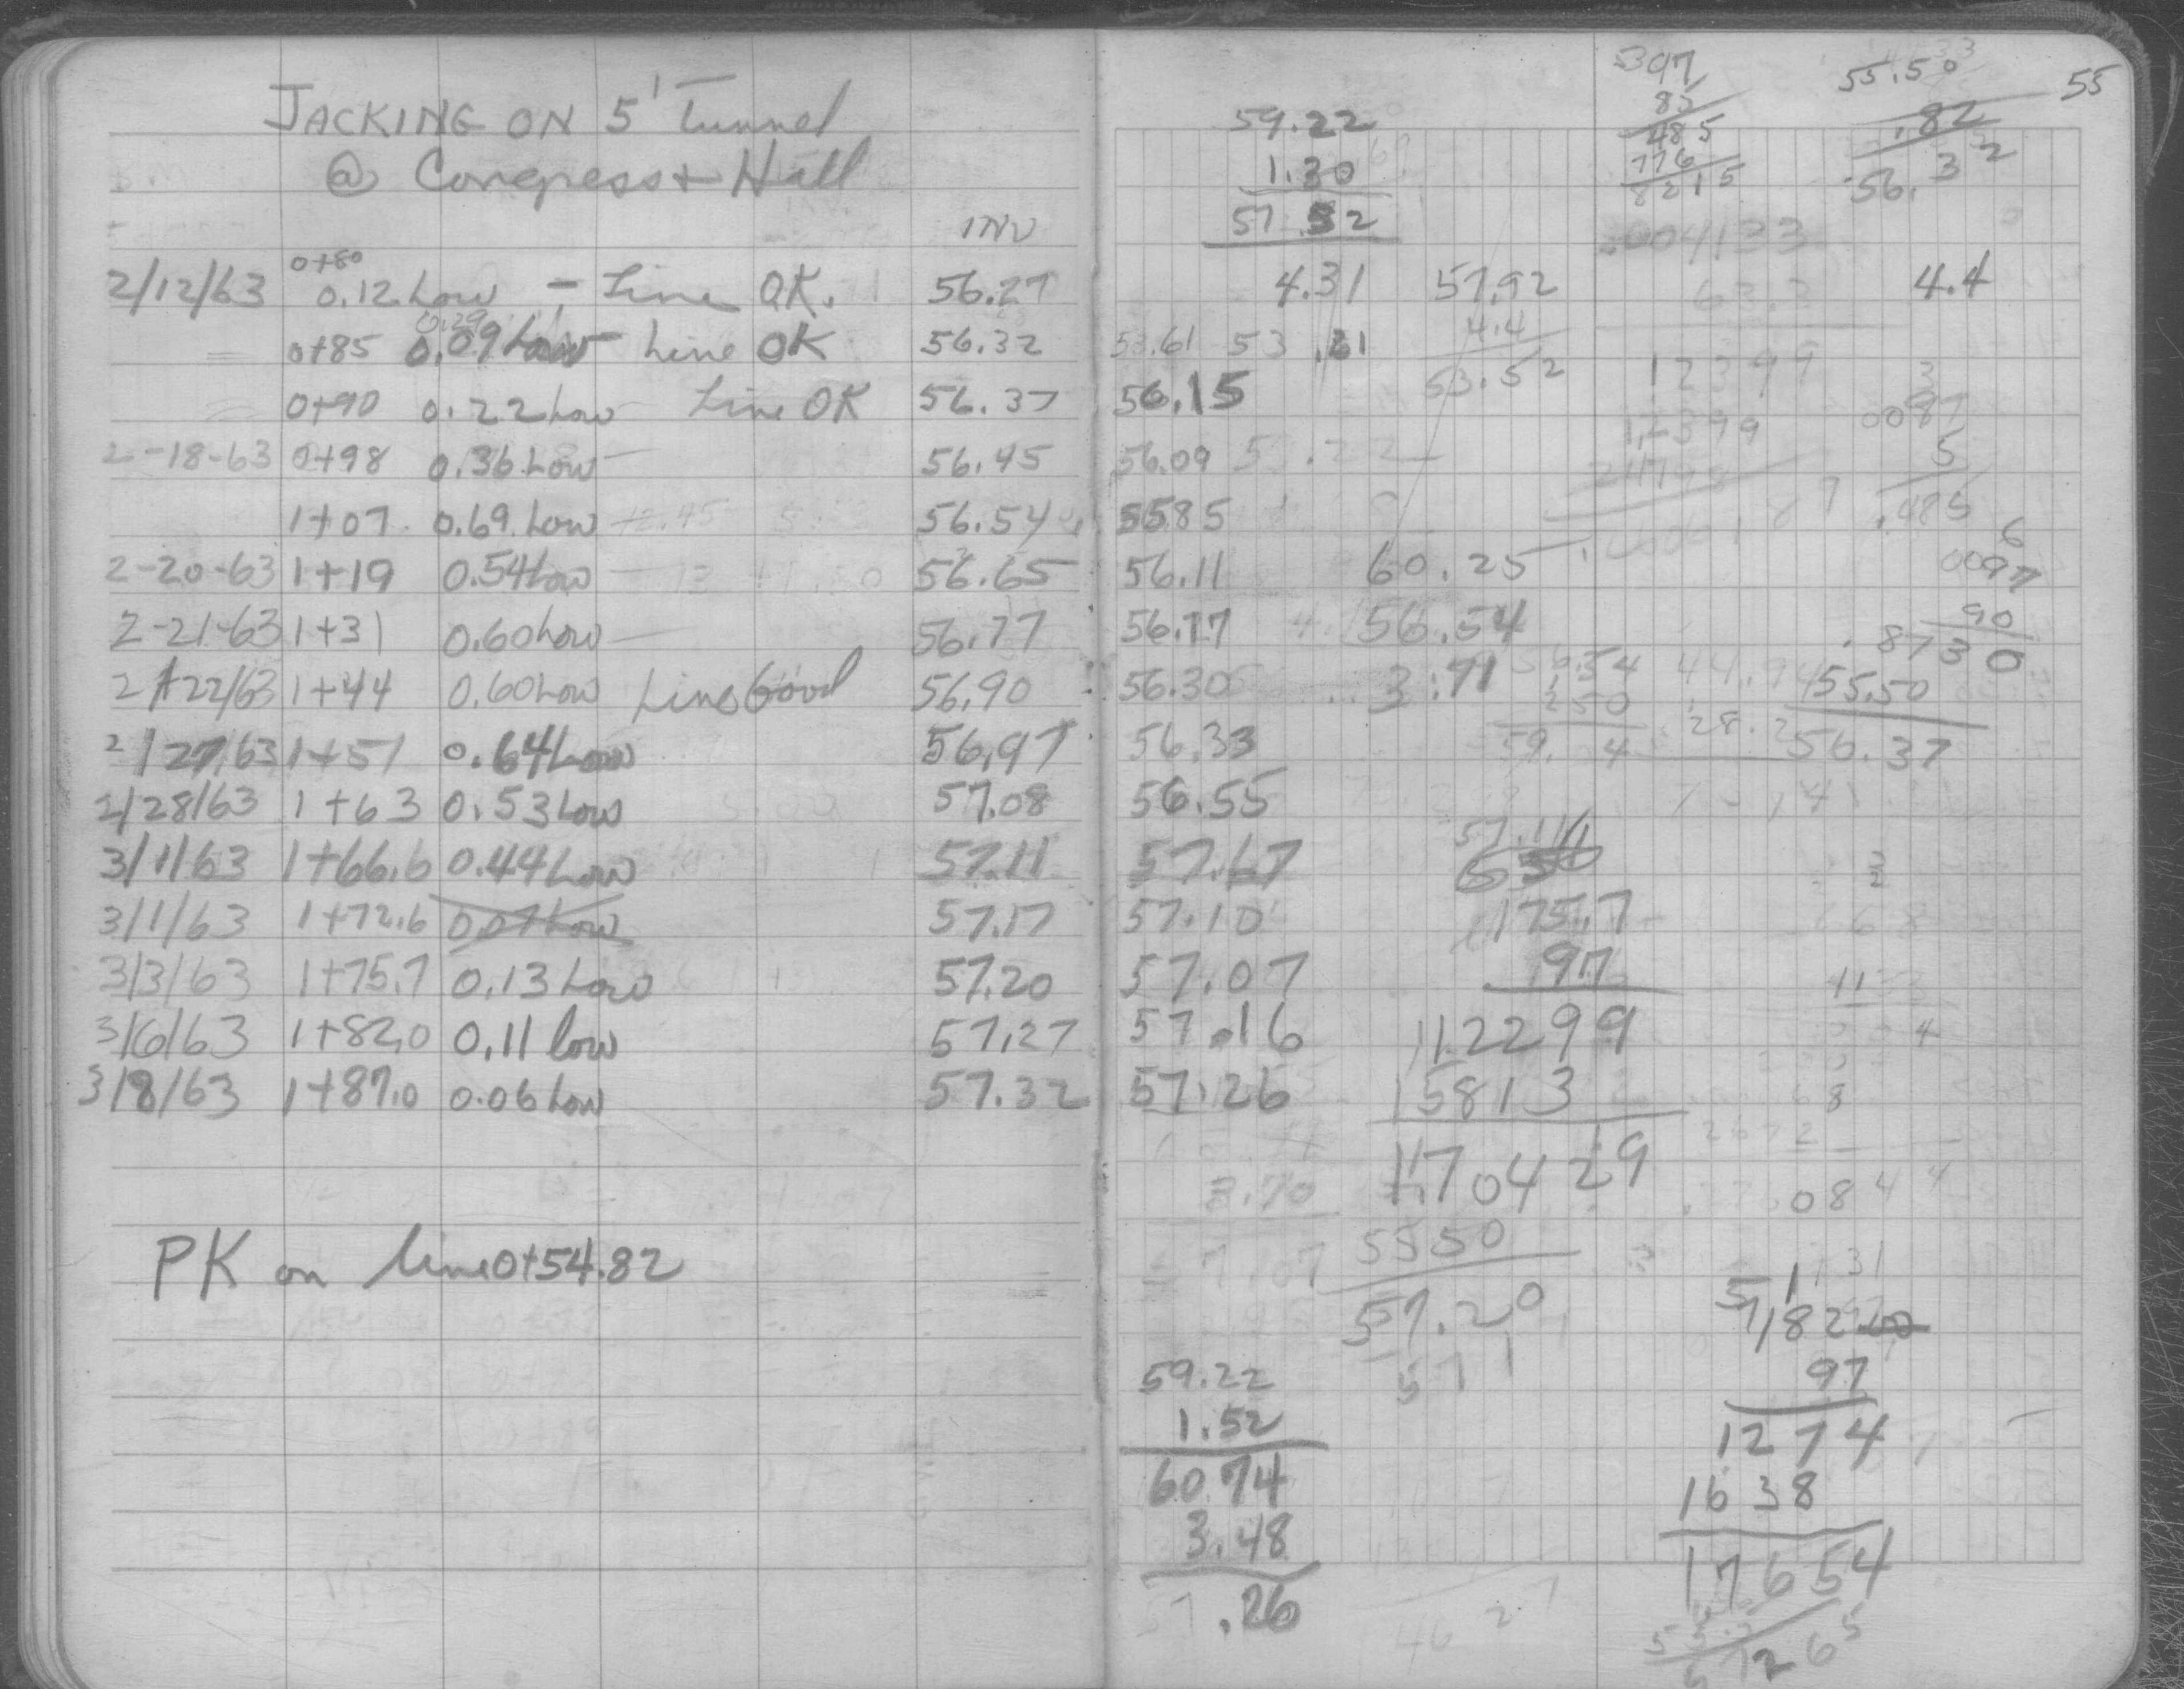 JACKING ON 5' Tunnel
@ Congress + Hall
INV
0+80
2/12/63 0.12 Low - Line OK. 56.27
0.29
0+85 0.09 Low - Line OK 56.32
0+90 0.22 Low Line OK 56.37
2-18-63 0+98 0.36 Low 56.45
1+07 0.69 Low 56.54
2-20-63 1+19 0.54 Low 56.65
2-21-63 1+31 0.60 Low 56.77
2/22/63 1+44 0.60 Low Line Good 56.90
2/27/63 1+51 0.64 Low 56.97
2/28/63 1+63 0.53 Low 57.08
3/1/63 1+66.6 0.44 Low 57.11
3/1/63 1+72.6 0.07 Low 57.17
3/3/63 1+75.7 0.13 Low 57.20
3/6/63 1+82.0 0.11 low 57.27
3/8/63 1+87.0 0.06 Low 57.32
PK on line 0+54.82
55
59.22
1.30
57.52
4.31
53.61 53.61
56.15
56.09
55.85
56.11
56.17
56.30
56.33
56.55
57.67
57.10
57.07
57.16
57.26
3.70
59.22
1.52
60.74
3.48
57.26
57.92
4.4
53.52
60.25
56.54
3.71
56.54
250
175.7
97
112299
15813
1170429
5550
57.20
571
397
85
485
776
8215
.004133
12399
55.50
.82
56.32
4.4
0087
5
.485
0097
90
.8730
55.50
56.37
11
4
8
0844
182
97
1274
1638
17654